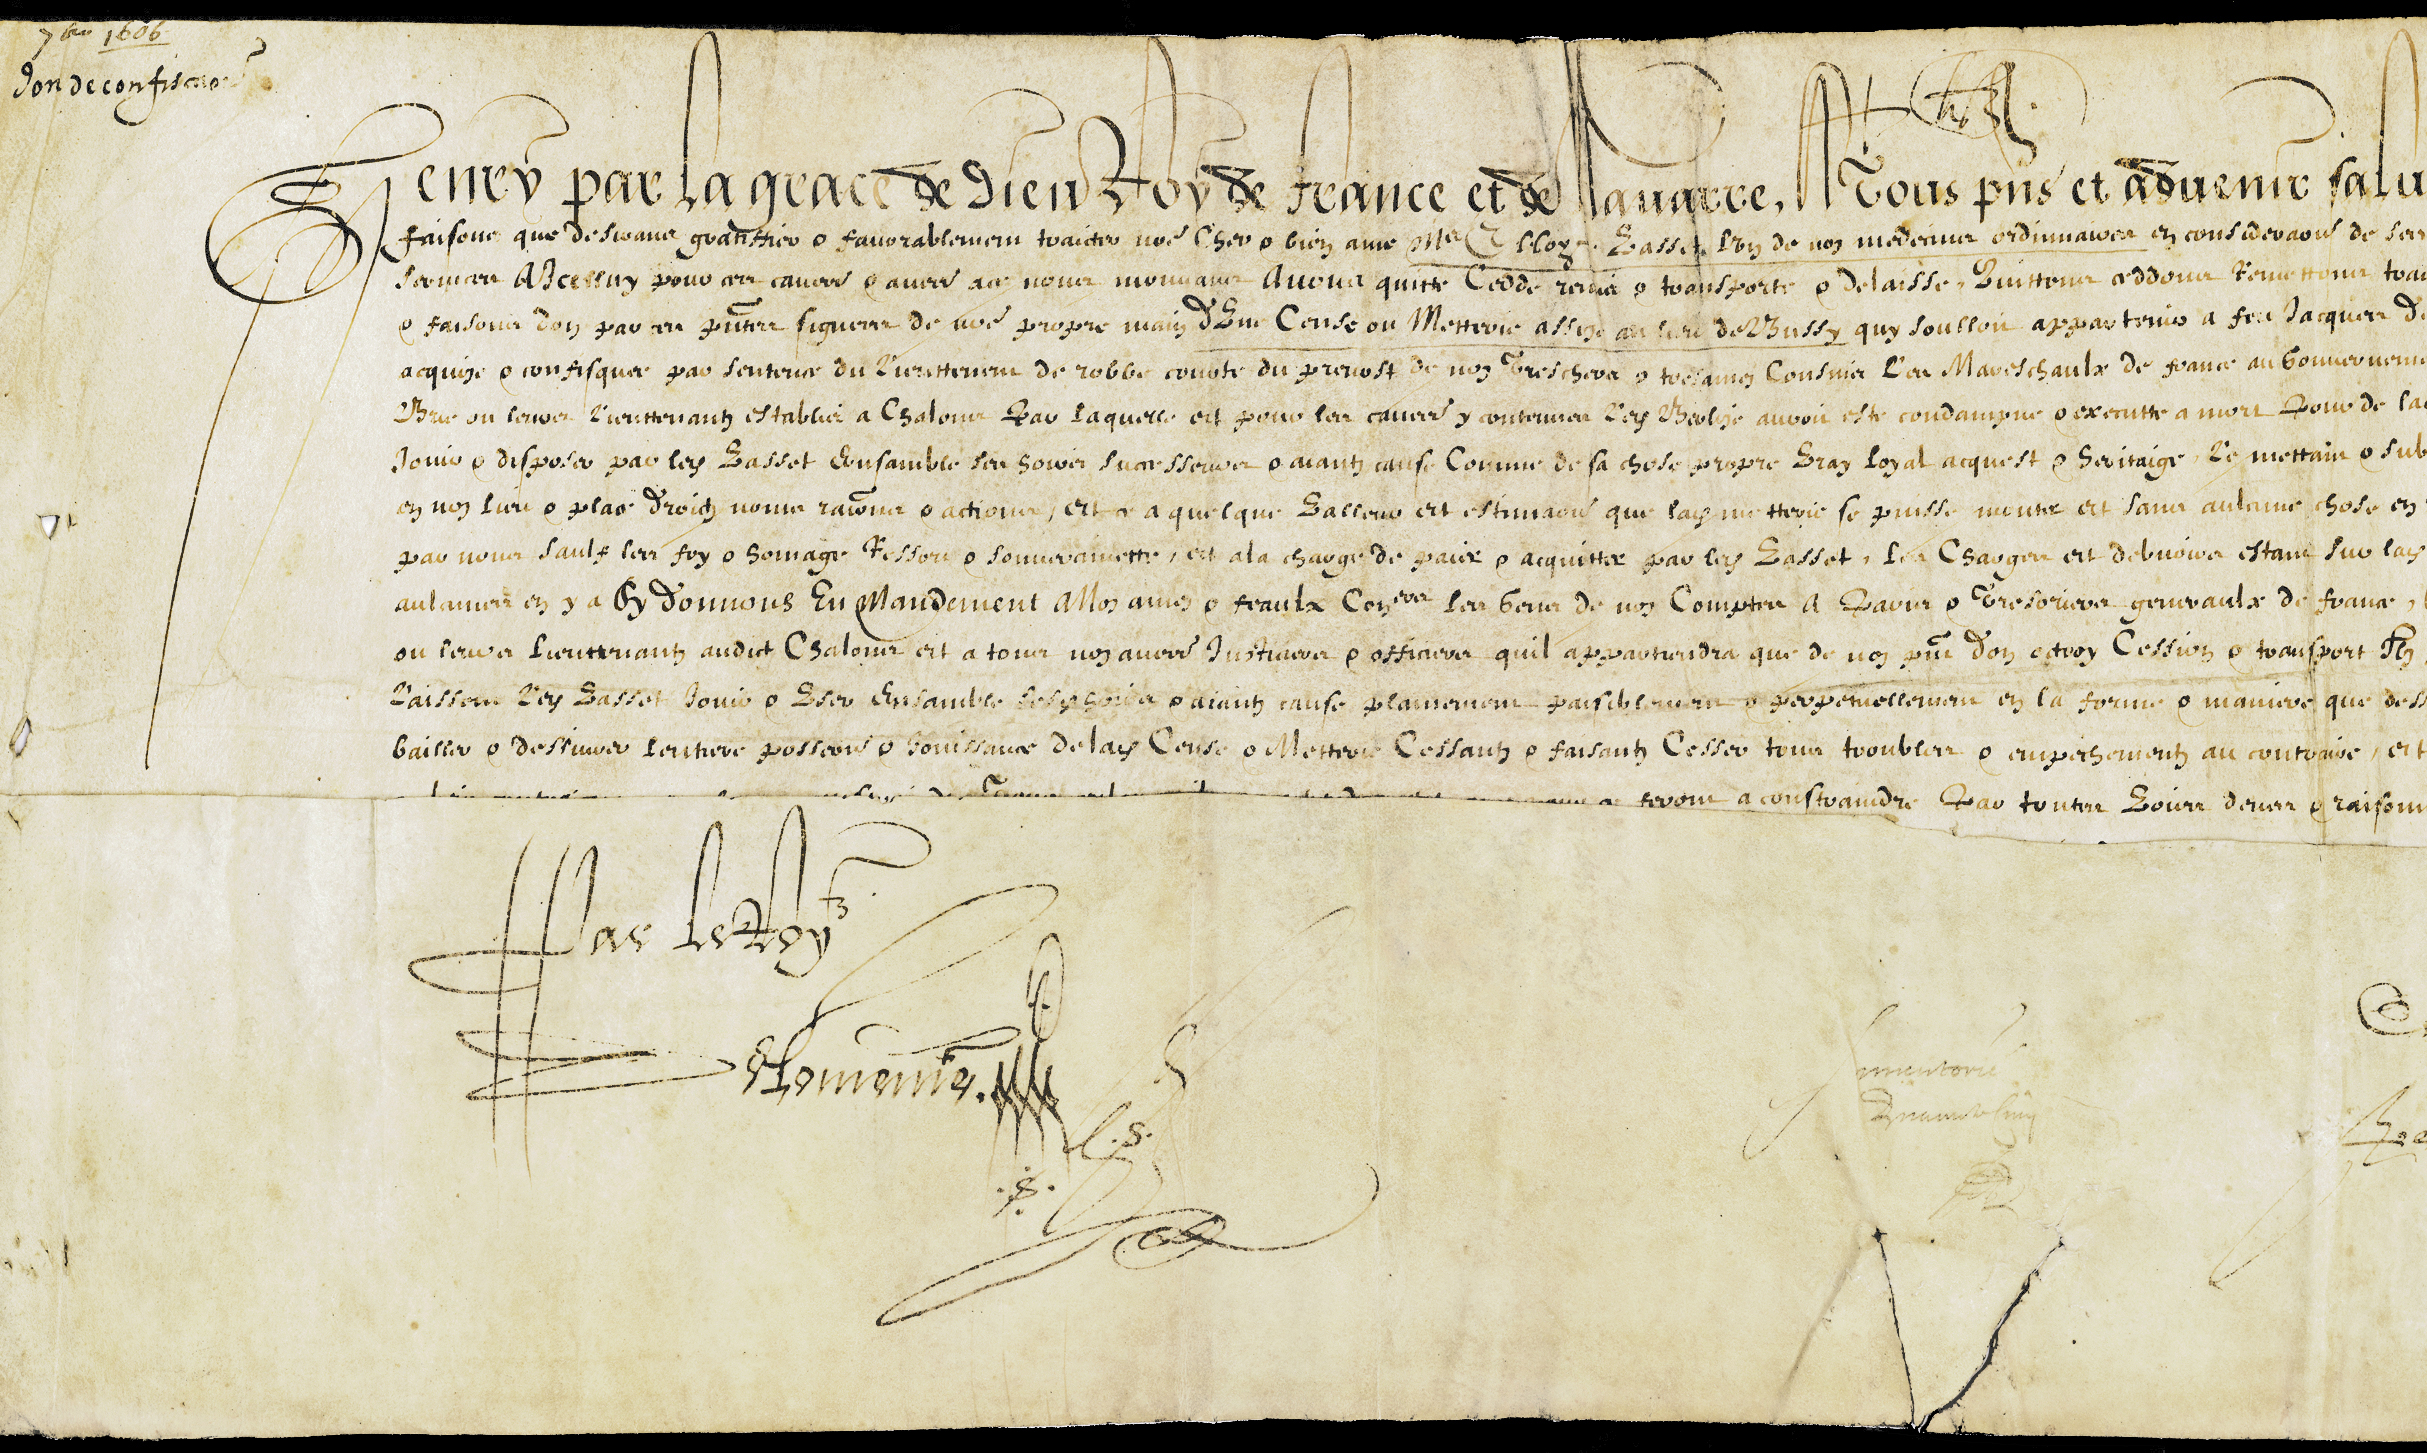 7bre 1606
Don de confiscaon
Henry par la grace de Dieu Roy de france et de Nauarre, A Tous pns et aduenir salu
faisons que desirans gratiffier & fauorablement traicter nre Cher & bien ame Mre Elloy Basset Lun de noz medecins ordinnaires en consideraon de ser
seruices A Icelluy pour ces causes & autres ace nous mouuans Auons quitte Cedde remis & transporte & delaisse, Quittons ceddons Remettons tra
& faisons don par ces pntes signees de nre propre main d'Une Cense ou Metterie assize au lieu de Bussy quy soulloit appartenir a feu Jacques de
acquize & confisquee par sentence du Lieuttenent de robbe courte du preuost de noz Treschers & tresamez Cousins Les Mareschaulx de france au Gouuerneme
Brie ou leurs Lieuttenantz establis a Chalons Par laquelle et pour les causes y contenues Led auroit este condampne & executte a mort Pour de lad
Jouir & disposer par led Basset Ensamble ses hoirs successeurs & aiantz cause Comme de sa chose propre Vray Loyal acquest & heritaige, Le mettans & sub
en noz lieu & place droictz noms raisons & actions, et ce a quelque Valleur et estimaon que lad metterie se puisse monter et sans aulcune chose en
par nous saulf les foy & homage Ressort & souuerainette, et ala charge de paier & acquitter par led Basset, Les Charges et debuoirs estans sur lad
aulcuns en y a Sy donnons En Mandement A Noz amez & feaulx Coners les Gens de noz Comptes A Paris & Tresoriers generaulx de france,
ou leurs Lieuttenantz audict Chalons et a tous noz autres Justiciers & officiers quil appartiendra que de noz pns don octroy Cession & transport Ilz
Laissent Led Basset Jouir & Vser Ensamble sesd hoirs & aiantz cause plainement paisiblement & perpetuellement en la forme & maniere que dess
bailler & dessiurer lentiere possession & Jouissance delad Cense & Metterie Cessantz & faisantz Cesser tous troubles & empeschementz au contraire, et
feront a constraindre Par toutes Voies deues & raisonn
Par le Roy
Delomenie